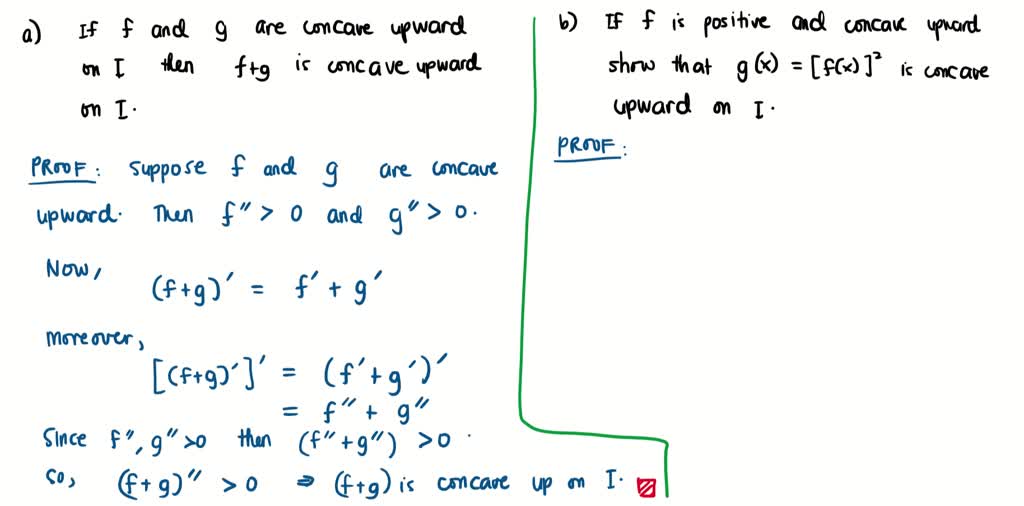 a) If f and g are concave upward
on I then f+g is concave upward
on I.
PROOF: Suppose f and g are concave
upward. Then f″ > 0 and g″ > 0.
Now,
(f+g)′ = f′ + g′
moreover,
[(f+g)′]′ = (f′+g′)′
= f″ + g″
Since f″, g″ >0 then (f″+g″) >0.
So, (f+g)″ > 0 ⇒ (f+g) is concave up on I.
b) If f is positive and concave upward
show that g(x) = [f(x)]² is concave
upward on I.
PROOF: